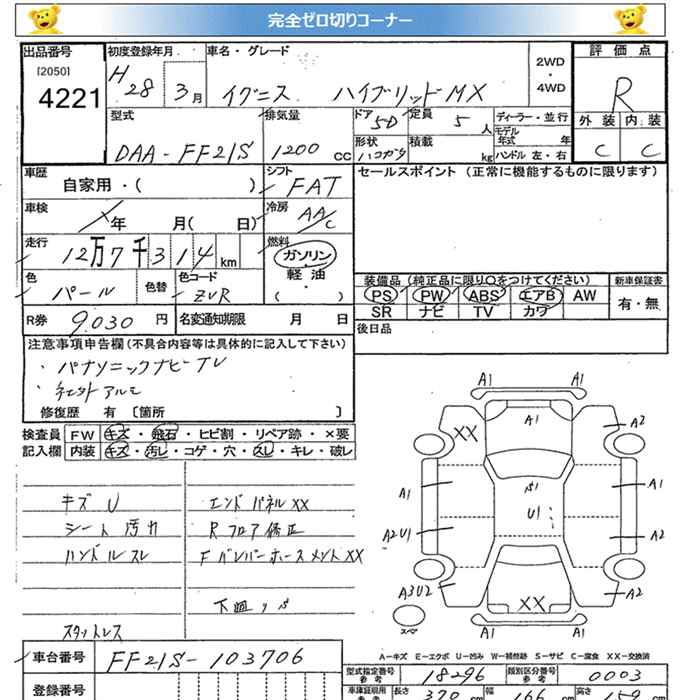 完全ゼロ切りコーナー
出品番号
[2050]
4221
初度登録年月
H 28 3月
車名・グレード
イグニス ハイブリッドMX
2WD
・
4WD
評価点
R
外装 内装
C C
型式
DAA-FF21S
排気量
1200 cc
ドア
5D
定員
5人
形状
ハコガタ
積載
kg
ディーラー・並行
モデル年式 年
ハンドル 左・右
車歴
自家用・( )
シフト
FAT
セールスポイント (正常に機能するものに限ります)
車検
年 月( 日)
冷房
AA/C
走行
12万7千314km
燃料
ガソリン
軽油
( )
色
パール
色替
色コード
ZVR
装備品 (純正品に限り○をつけてください)
PS PW ABS エアB AW
SR ナビ TV カワ
新車保証書
有・無
R券
9,030円
名変通知期限 月 日
後日品
注意事項申告欄 (不具合内容等は具体的に記入して下さい)
・パナソニックナビーTV
・社外アルミ
修復歴 有 〔箇所 〕
検査員記入欄
FW キズ・飛石・ヒビ割・リペア跡・×要
内装 キズ・汚レ・コゲ・穴・スレ・キレ・破レ
キズ U
シート汚れ
ハンドルスレ
スタットレス
エンドパネルXX
Rフロア修正
FバンパーホースメントXX
下廻り
A1 A1
XX A2
A1 A1 A1
U1
A2U1 A2
A3U2 XX A2
スペ
A1 A1
A−キズ E−エクボ U−凹み W−補修跡 S−サビ C−腐食 XX−交換済
車台番号
FF21S-103706
登録番号
型式指定番号
参考
18296
類別区分番号
参考
0003
車庫証明用
参考
長さ
370cm
幅
166cm
高さ
159cm